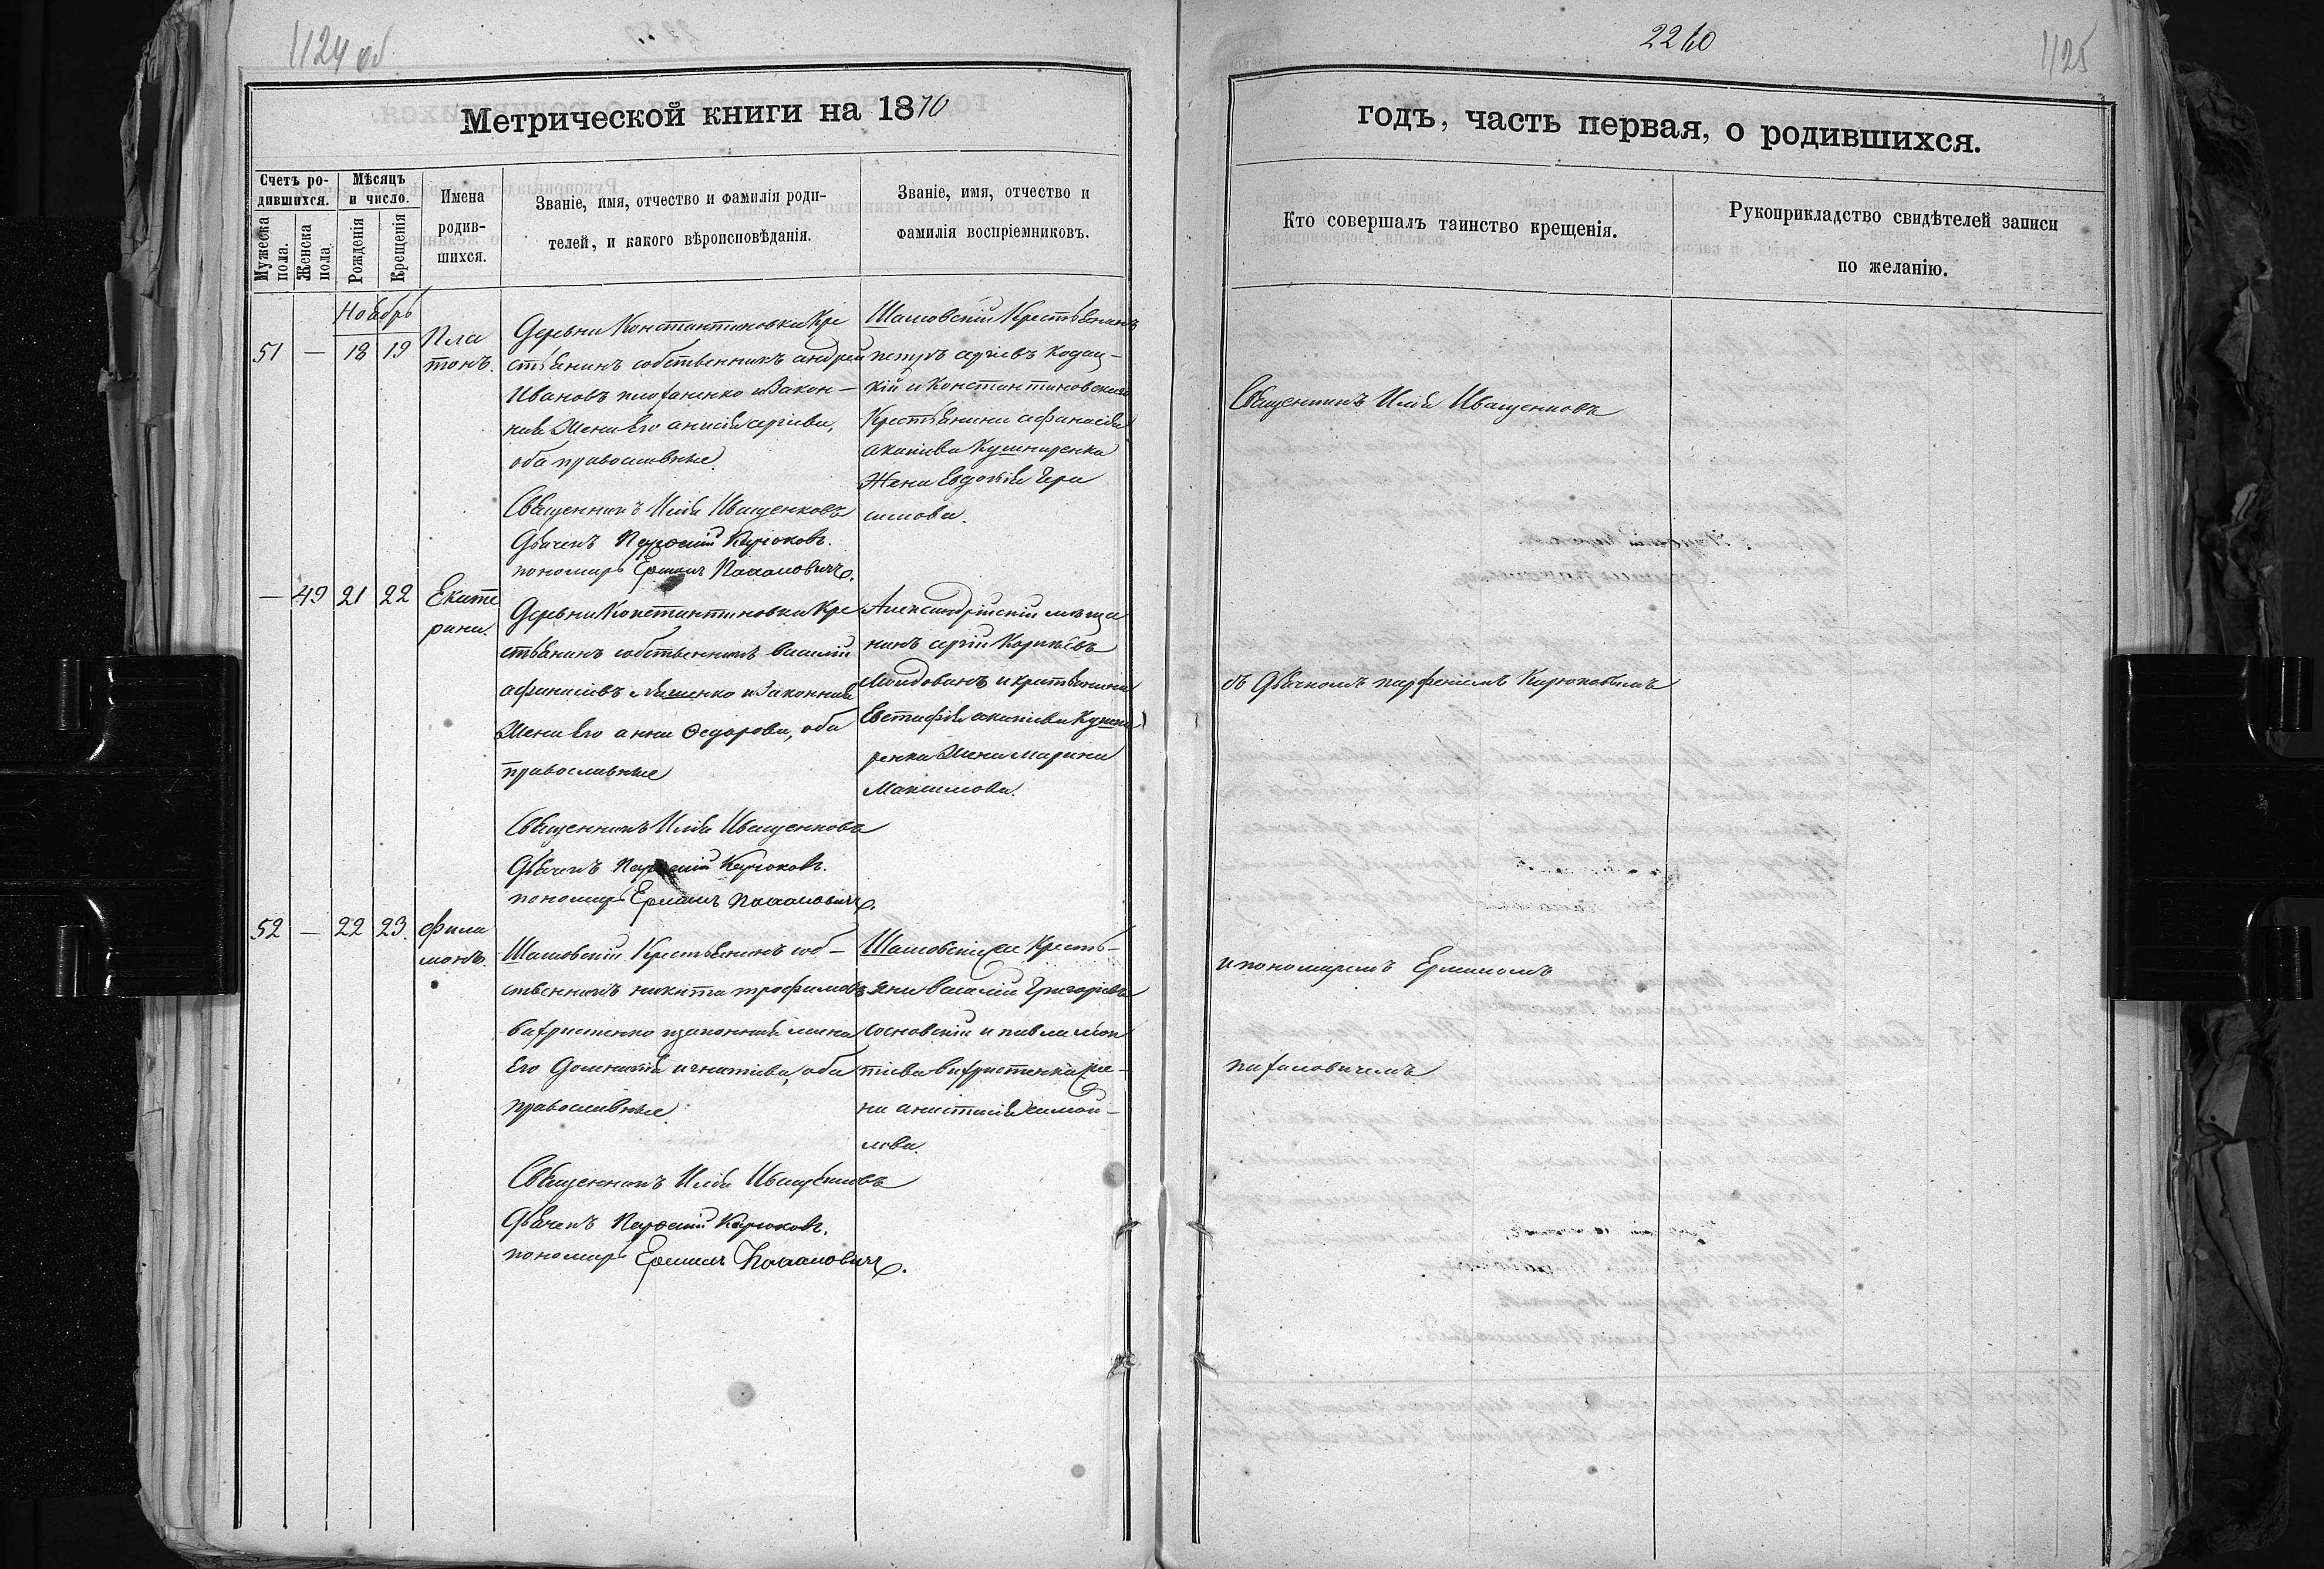 1124 об
2260
1125
Метрической книги на 1870
годъ, часть первая, о родившихся.
Счетъ ро-
дившихся.
Мѣсяцъ
и число.
Мужеска
пола.
Женска
пола
Рожденія
Крещенія
Имена
родив-
шихся.
Званіе, имя, отчество и фамилія роди-
телей, и какого вѣроисповѣданія.
Званіе, имя, отчество и
фамилія воспріемниковъ.
Кто совершалъ таинство крещенія.
Рукоприкладство свидѣтелей записи
по желанію.
Ноябрь
51 — 18 19
Пла
тонъ.
Деревни Константиновки Кре
стьянинъ собственникъ андрей
Ивановъ и закон—
ная Жена его анисія сергіева,
оба православные.
Священникъ Илія Иващенковъ
Дьячекъ Парфеній Кирюковъ.
пономарь Ермилъ
Крестьянинъ
петръ сергіевъ
кій и Константиновскаго
Крестьянина афанасія
акакіева Кушниренка
Жена Евдокія Гера
симова.
Священникъ Илія Иващенковъ
— 49 21 22
Екате
рина.
Деревни Константиновки Кре
стьянинъ собственникъ василій
афанасіевъ и законная
Жена его анна Федорова, оба
православные
Священникъ Илія Иващенковъ
Дьячекъ Парфеній Кирюковъ.
пономарь Ермилъ
Александрійскій мѣща
нинъ сергій
Молдованъ и крестьянина
Евстафія акакіева Кушни
ренка Жена Марина
Максимова.
съ Дьячкомъ парфеніемъ Кирюковымъ
52 — 22 23.
Фили
монъ.
Крестьянинъ соб—
ственникъ никита трофимовъ
и законная жена
Его Домникія игнатіева, оба
православные.
Священникъ Илія Иващенковъ
Дьячекъ Парфеній Кирюковъ.
пономарь Ермилъ
Кресть—
яне Василій Григоріевъ
сосновскій и павла леон
тіева же—
на анастасія самой—
лова.
и пономаремъ Ермиломъ